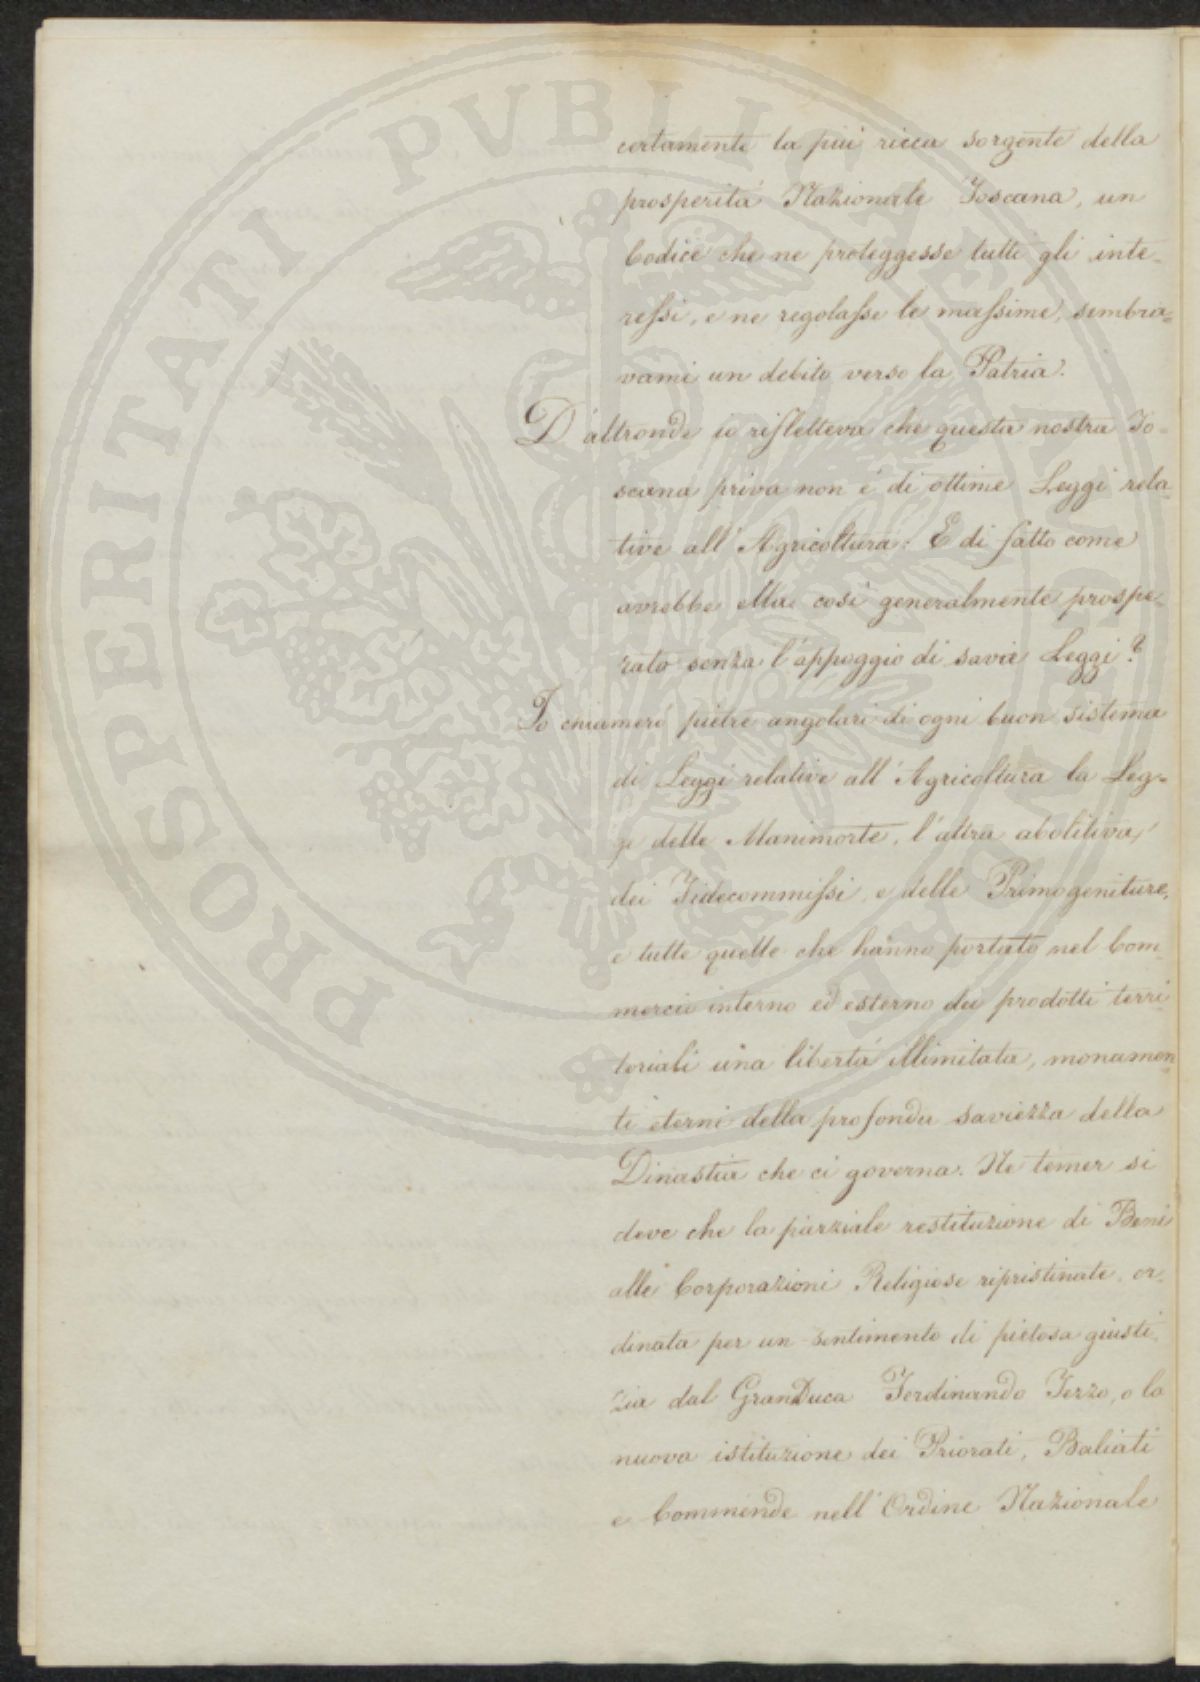 certamente la più ricca sorgente della
prosperità Nazionale Toscana, un
Codice che ne proteggesse tutti gli inte-
ressi, e ne regolasse le massime, sembra-
vami un debito verso la Patria.
D'altronde io rifletteva che questa nostra To-
scana priva non è di ottime Leggi rela-
tive all'Agricoltura. E di fatto come
avrebbe ella così generalmente prospe-
rato senza l'appoggio di savie Leggi?
Io chiamerò pietre angolari di ogni buon sistema
di Leggi relative all'Agricoltura la Leg-
ge delle Manimorte, l'altra abolitiva
dei Fidecommissi, e delle Primogeniture,
e tutte quelle che hanno portato nel Com-
mercio interno ed esterno dei prodotti terri-
toriali una libertà illimitata, monumen-
ti eterni della profonda saviezza della
Dinastia che ci governa. Ne temer si
deve che la parziale restituzione di Beni
alle Corporazioni Religiose ripristinate, or-
dinata per un sentimento di pietosa giusti-
zia dal GranDuca Ferdinando Terzo, o la
nuova istituzione dei Priorati, Baliati
e Commende nell'Ordine Nazionale
PROSPERITATI PVBLICAE AVGENDAE